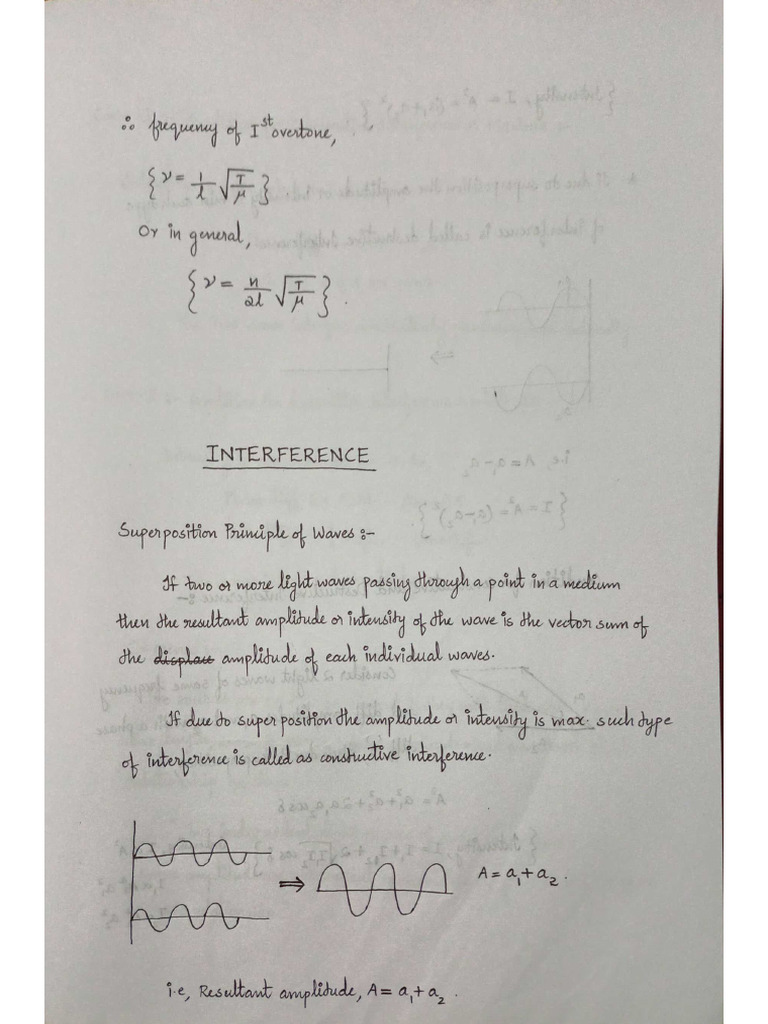 ∴ frequency of Ist overtone,
{ν = 1/l √(T/μ)}
Or in general,
{ν = n/2l √(T/μ)}.
INTERFERENCE
Superposition Principle of Waves :-
If two or more light waves passing through a point in a medium
then the resultant amplitude or intensity of the wave is the vector sum of
the displace amplitude of each individual waves.
If due to super position the amplitude or intensity is max. such type
of interference is called as constructive interference.
⇒ A = a₁ + a₂.
i.e, Resultant amplitude, A = a₁ + a₂.